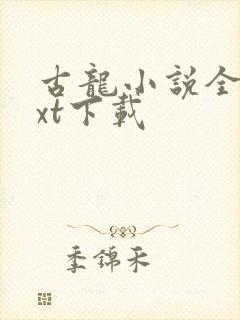 古龍小説全
xt下載
季錦禾